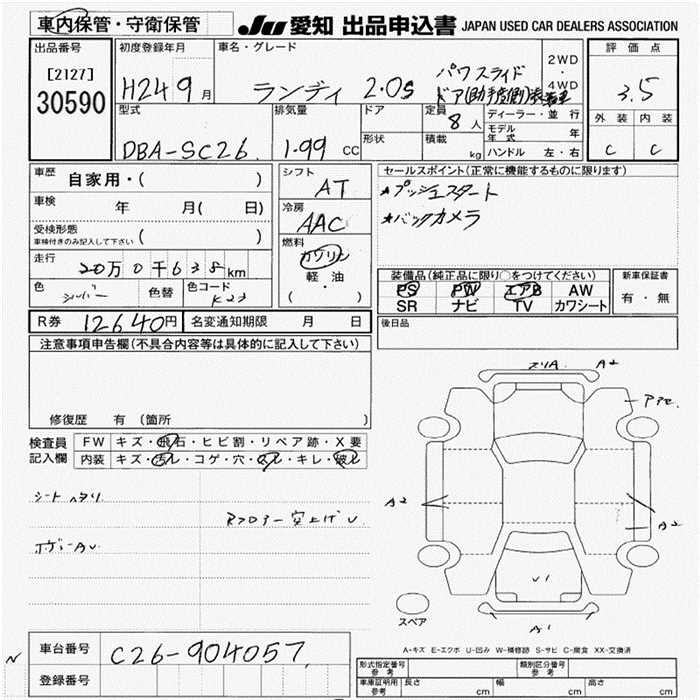 車内保管・守衛保管
JU 愛知 出品申込書 JAPAN USED CAR DEALERS ASSOCIATION
出品番号
[2127]
30590
初度登録年月
H24 9月
車名・グレード
ランディ 2.0S
パワスライド
2WD
・
4WD
評価点
3.5
外装 内装
C C
型式
DBA-SC26
排気量
1.99 CC
ドア
形状
定員
8人
積載
kg
ディーラー・並行
モデル年式 年
ハンドル 左・右
車歴 自家用・( )
車検 年 月( 日)
受検形態
車検付きのみ記入して下さい ( )
走行 20万0千638km
色 シルバー 色替 色コード K23
シフト
AT
冷房
AAC
燃料
ガソリン
軽・油
( )
セールスポイント(正常に機能するものに限ります)
★プッシュスタート
★バックカメラ
装備品(純正品に限り○をつけてください)
PS PW エアB AW
SR ナビ TV カワシート
新車保証書
有・無
後日品
R券 12640円 名変通知期限 月 日
注意事項申告欄(不具合内容等は具体的に記入して下さい)
修復歴 有(箇所 )
検査員
記入欄
FW キズ・飛石・ヒビ割・リペア跡・X要
内装 キズ・汚レ・コゲ・穴・スレ・キレ・破レ
シートヘタリ
A2
A2
A2
U1
A1
スペア
A-キズ E-エクボ U-凹み W-補修跡 S-サビ C-腐食 XX-交換済
車台番号 C26-904057
登録番号
N
形式指定番号
参考
類別区分番号
参考
車庫証明用
参考
長さ cm 幅 cm 高さ cm